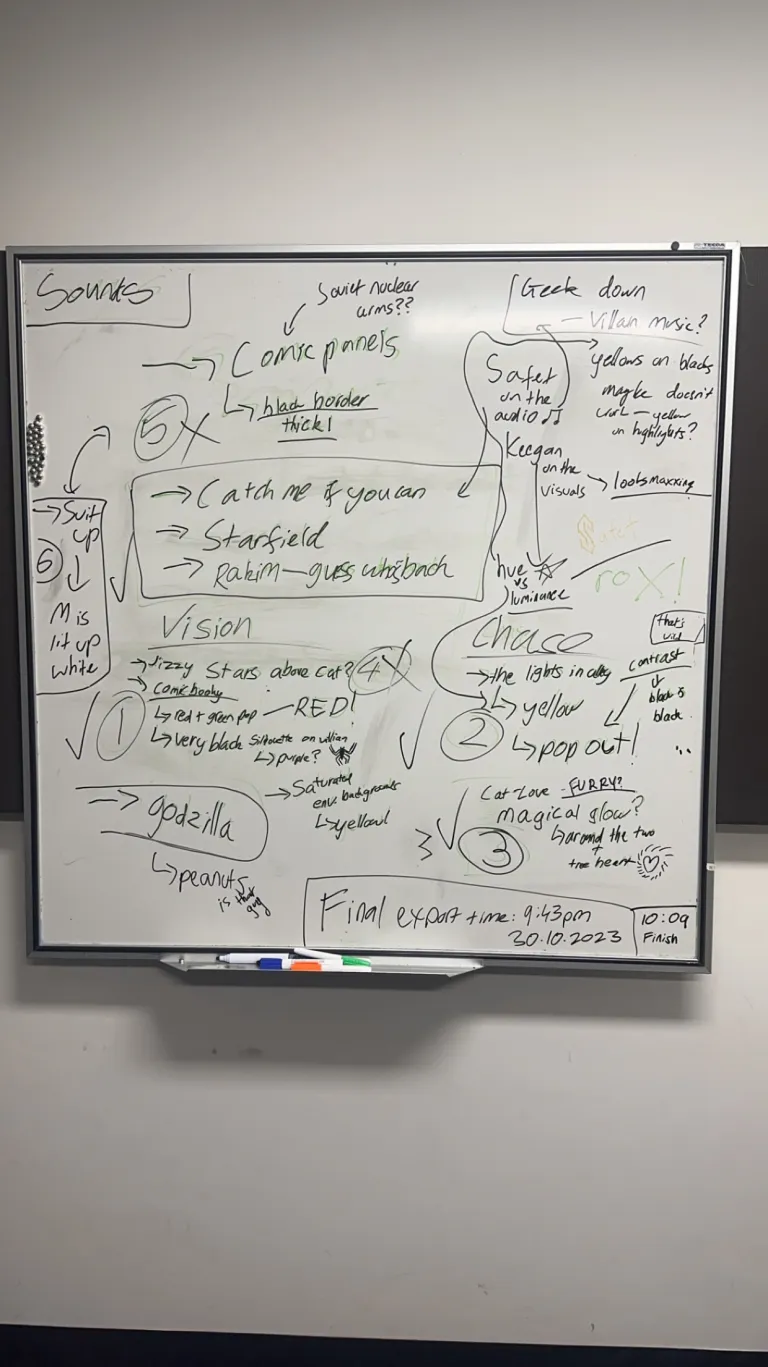 Sounds
Soviet nuclear
arms??
→ Comic panels
↳ black border
thick!
5 X
→ Catch me if you can
→ Starfield
→ Rakim — guess who's back
→ Suit
up
6
↓
M is
lit up
white
Vision
→ Jizzy Stars above cat? 4 X
→ Comic booky
↳ red + green pop — RED!
↳ very black silhouette on villian
↳ purple?
1
→ Saturated
env. backgrounds
↳ yellow!
→ godzilla
↳ peanuts
is that
guy
Geek down
— Villan music?
Safet
on the
audio ♫
yellows on blacks
maybe doesn't
work — yellow
on highlights?
Keegan
on the
visuals → looksmaxxing
Safet
rox!
hue
vs
luminance
Chase
→ the lights in alley
↳ yellow
2
↳ pop out!
that's
wild
contrast
↓
black is
black
...
Cat-Love - FURRY?
magical glow?
↳ around the two
+
tree heart
3
Final export time: 9:43pm
30.10.2023
10:09
Finish